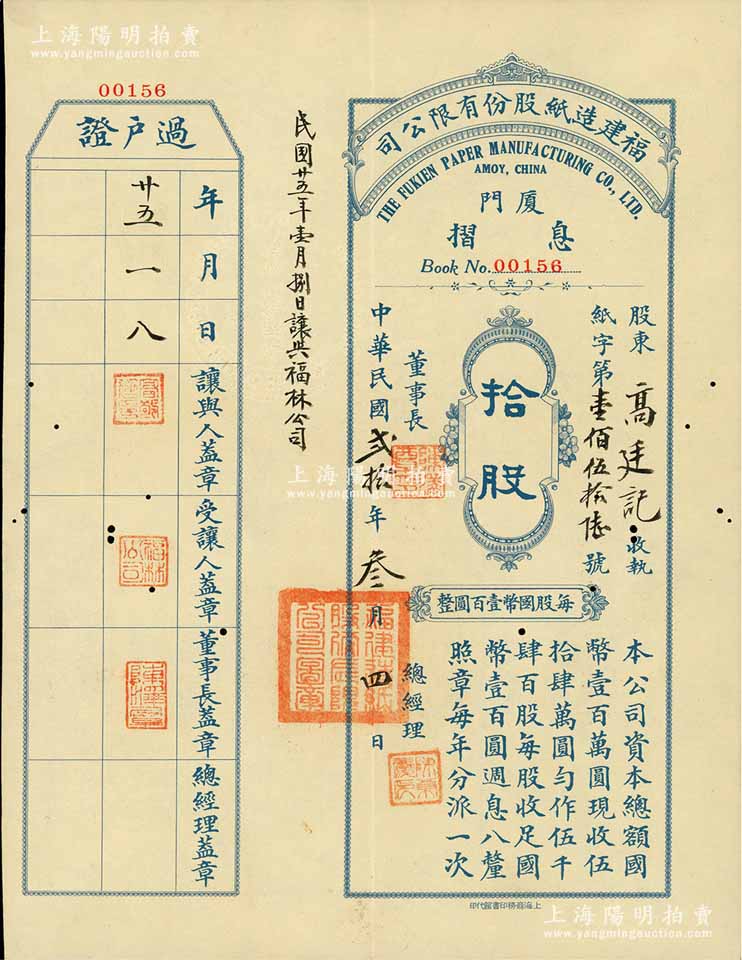 上海陽明拍賣
www.yangmingauction.com
福建造紙股份有限公司
THE FUKIEN PAPER MANUFACTURING CO., LTD.
AMOY, CHINA
廈門
息摺
Book No. 00156
股東 高廷記 收執
紙字第壹佰伍拾陸號
拾股
董事長
中華民國弍拾年叁月四日
總經理
每股國幣壹百圓整
本公司資本總額國
幣壹百萬圓現收伍
拾肆萬圓勻作伍千
肆百股每股收足國
幣壹百圓週息八釐
照章每年分派一次
上海商務印書館代印
民國廿五年壹月捌日讓與福林公司
00156
過戶證
年月日讓與人蓋章受讓人蓋章董事長蓋章總經理蓋章
廿五 一 八
福林公司
上海陽明拍賣
www.yangmingauction.com
上海陽明拍賣
www.yangmingauction.com